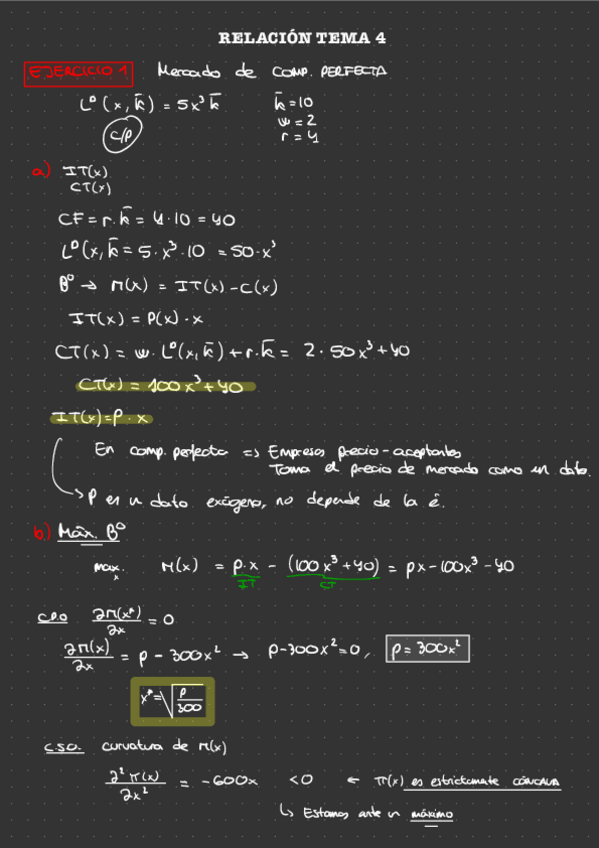 RELACIÓN TEMA 4
EJERCICIO 1 Mercado de COMP. PERFECTA
L⁰(x, k̄) = 5x³ k̄ k̄ = 10
c/p w = 2
r = 4
a) IT(x)
CT(x)
CF = r·k̄ = 4·10 = 40
L⁰(x, k̄ = 5·x³·10 = 50·x³
B⁰ → π(x) = IT(x) - C(x)
IT(x) = P(x)·x
CT(x) = w·L⁰(x, k̄) + r·k̄ = 2·50x³ + 40
CT(x) = 100x³ + 40
IT(x) = P·x
En comp. perfecta => Empresas precio-aceptantes
Toma el precio de mercado como un dato.
P es un dato exógeno, no depende de la é.
b) Máx. B⁰
max. x π(x) = p·x - (100x³ + 40) = px - 100x³ - 40
IT CT
C.P.O ∂π(x*)/∂x = 0
∂π(x)/∂x = p - 300x² → p - 300x² = 0, p = 300x²
x* = √(p/300)
C.S.O. curvatura de π(x)
∂²π(x)/∂x² = -600x < 0 ← π(x) es estrictamente cóncava
↳ Estamos ante un máximo